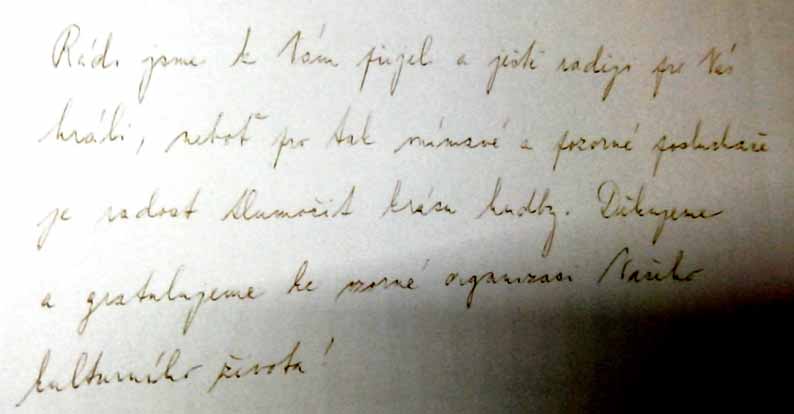 Rádi jsme k Vám přijeli a ještě raději pro Vás
hráli, neboť pro tak vnímavé a pozorné posluchače
je radost tlumočit krásu hudby. Děkujeme
a gratulujeme ke vzorné organizaci Vašeho
kulturního života!